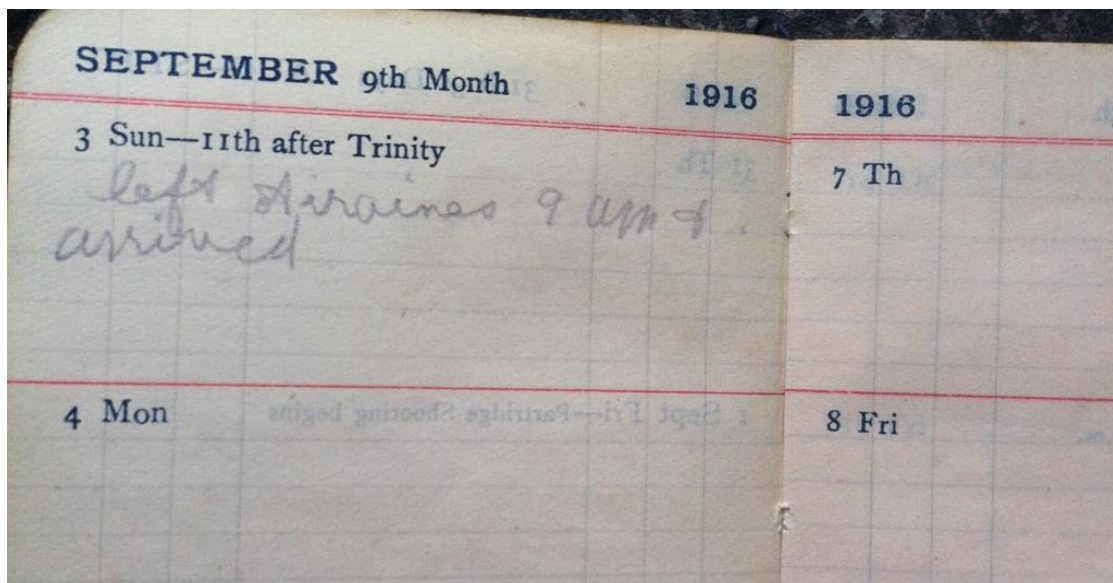 SEPTEMBER 9th Month 1916
3 Sun—11th after Trinity
left Airaines 9 am &
arrived
4 Mon
1916
7 Th
8 Fri